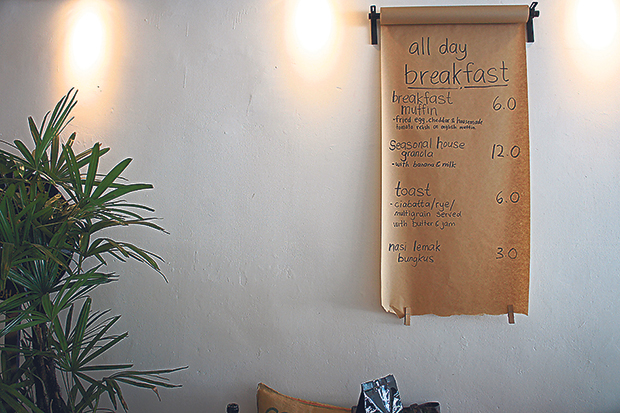 all day
breakfast
breakfast 6.0
muffin
-fried egg, cheddar & housemade
tomato relish on english muffin
Seasonal house
granola 12.0
-with banana & milk
toast 6.0
- ciabatta/rye/
multigrain served
with butter & jam
nasi lemak 3.0
bungkus